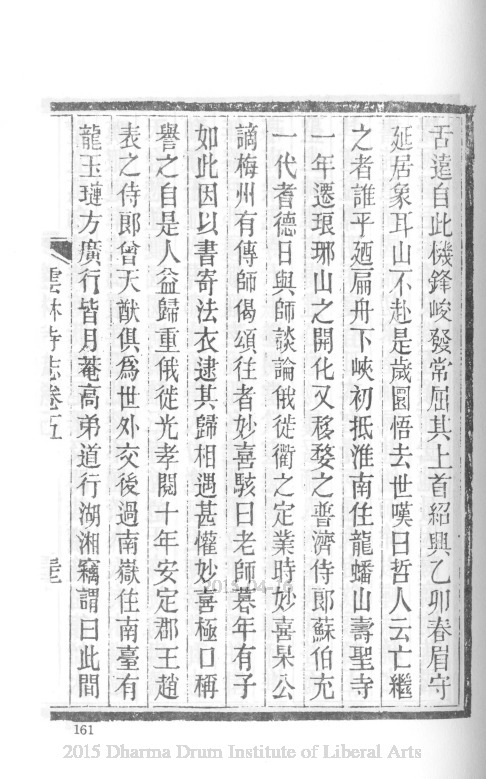 舌遠自此機鋒峻發常屈其上首紹興乙卯春眉守
延居象耳山不赴是歲圓悟去世嘆曰哲人云亡繼
之者誰乎廼扁舟下峽初抵淮南住龍蟠山壽聖寺
一年遷琅琊山之開化又移婺之普濟侍郎蘇伯充
一代耆德日與師談論俄徙衢之定業時妙喜杲公
謫梅州有傳師偈頌往者妙喜駭曰老師暮年有子
如此因以書寄法衣逮其歸相遇甚懽妙喜極口稱
譽之自是人益歸重俄徙光孝閱十年安定郡王趙
表之侍郎曾天猷俱為世外交後過南嶽住南臺有
龍玉璉方廣行皆月菴高弟道行湖湘竊謂曰此間
雲林寺志卷五
161
2015.04.16
2015 Dharma Drum Institute of Liberal Arts